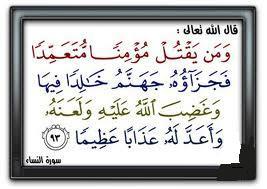 قال الله تعالى :
وَمَن يَقْتُلْ مُؤْمِنًا مُّتَعَمِّدًا
فَجَزَآؤُهُ جَهَنَّمُ خَالِدًا فِيهَا
وَغَضِبَ اللَّهُ عَلَيْهِ وَلَعَنَهُ
وَأَعَدَّ لَهُ عَذَابًا عَظِيمًا ٩٣
سورة النساء